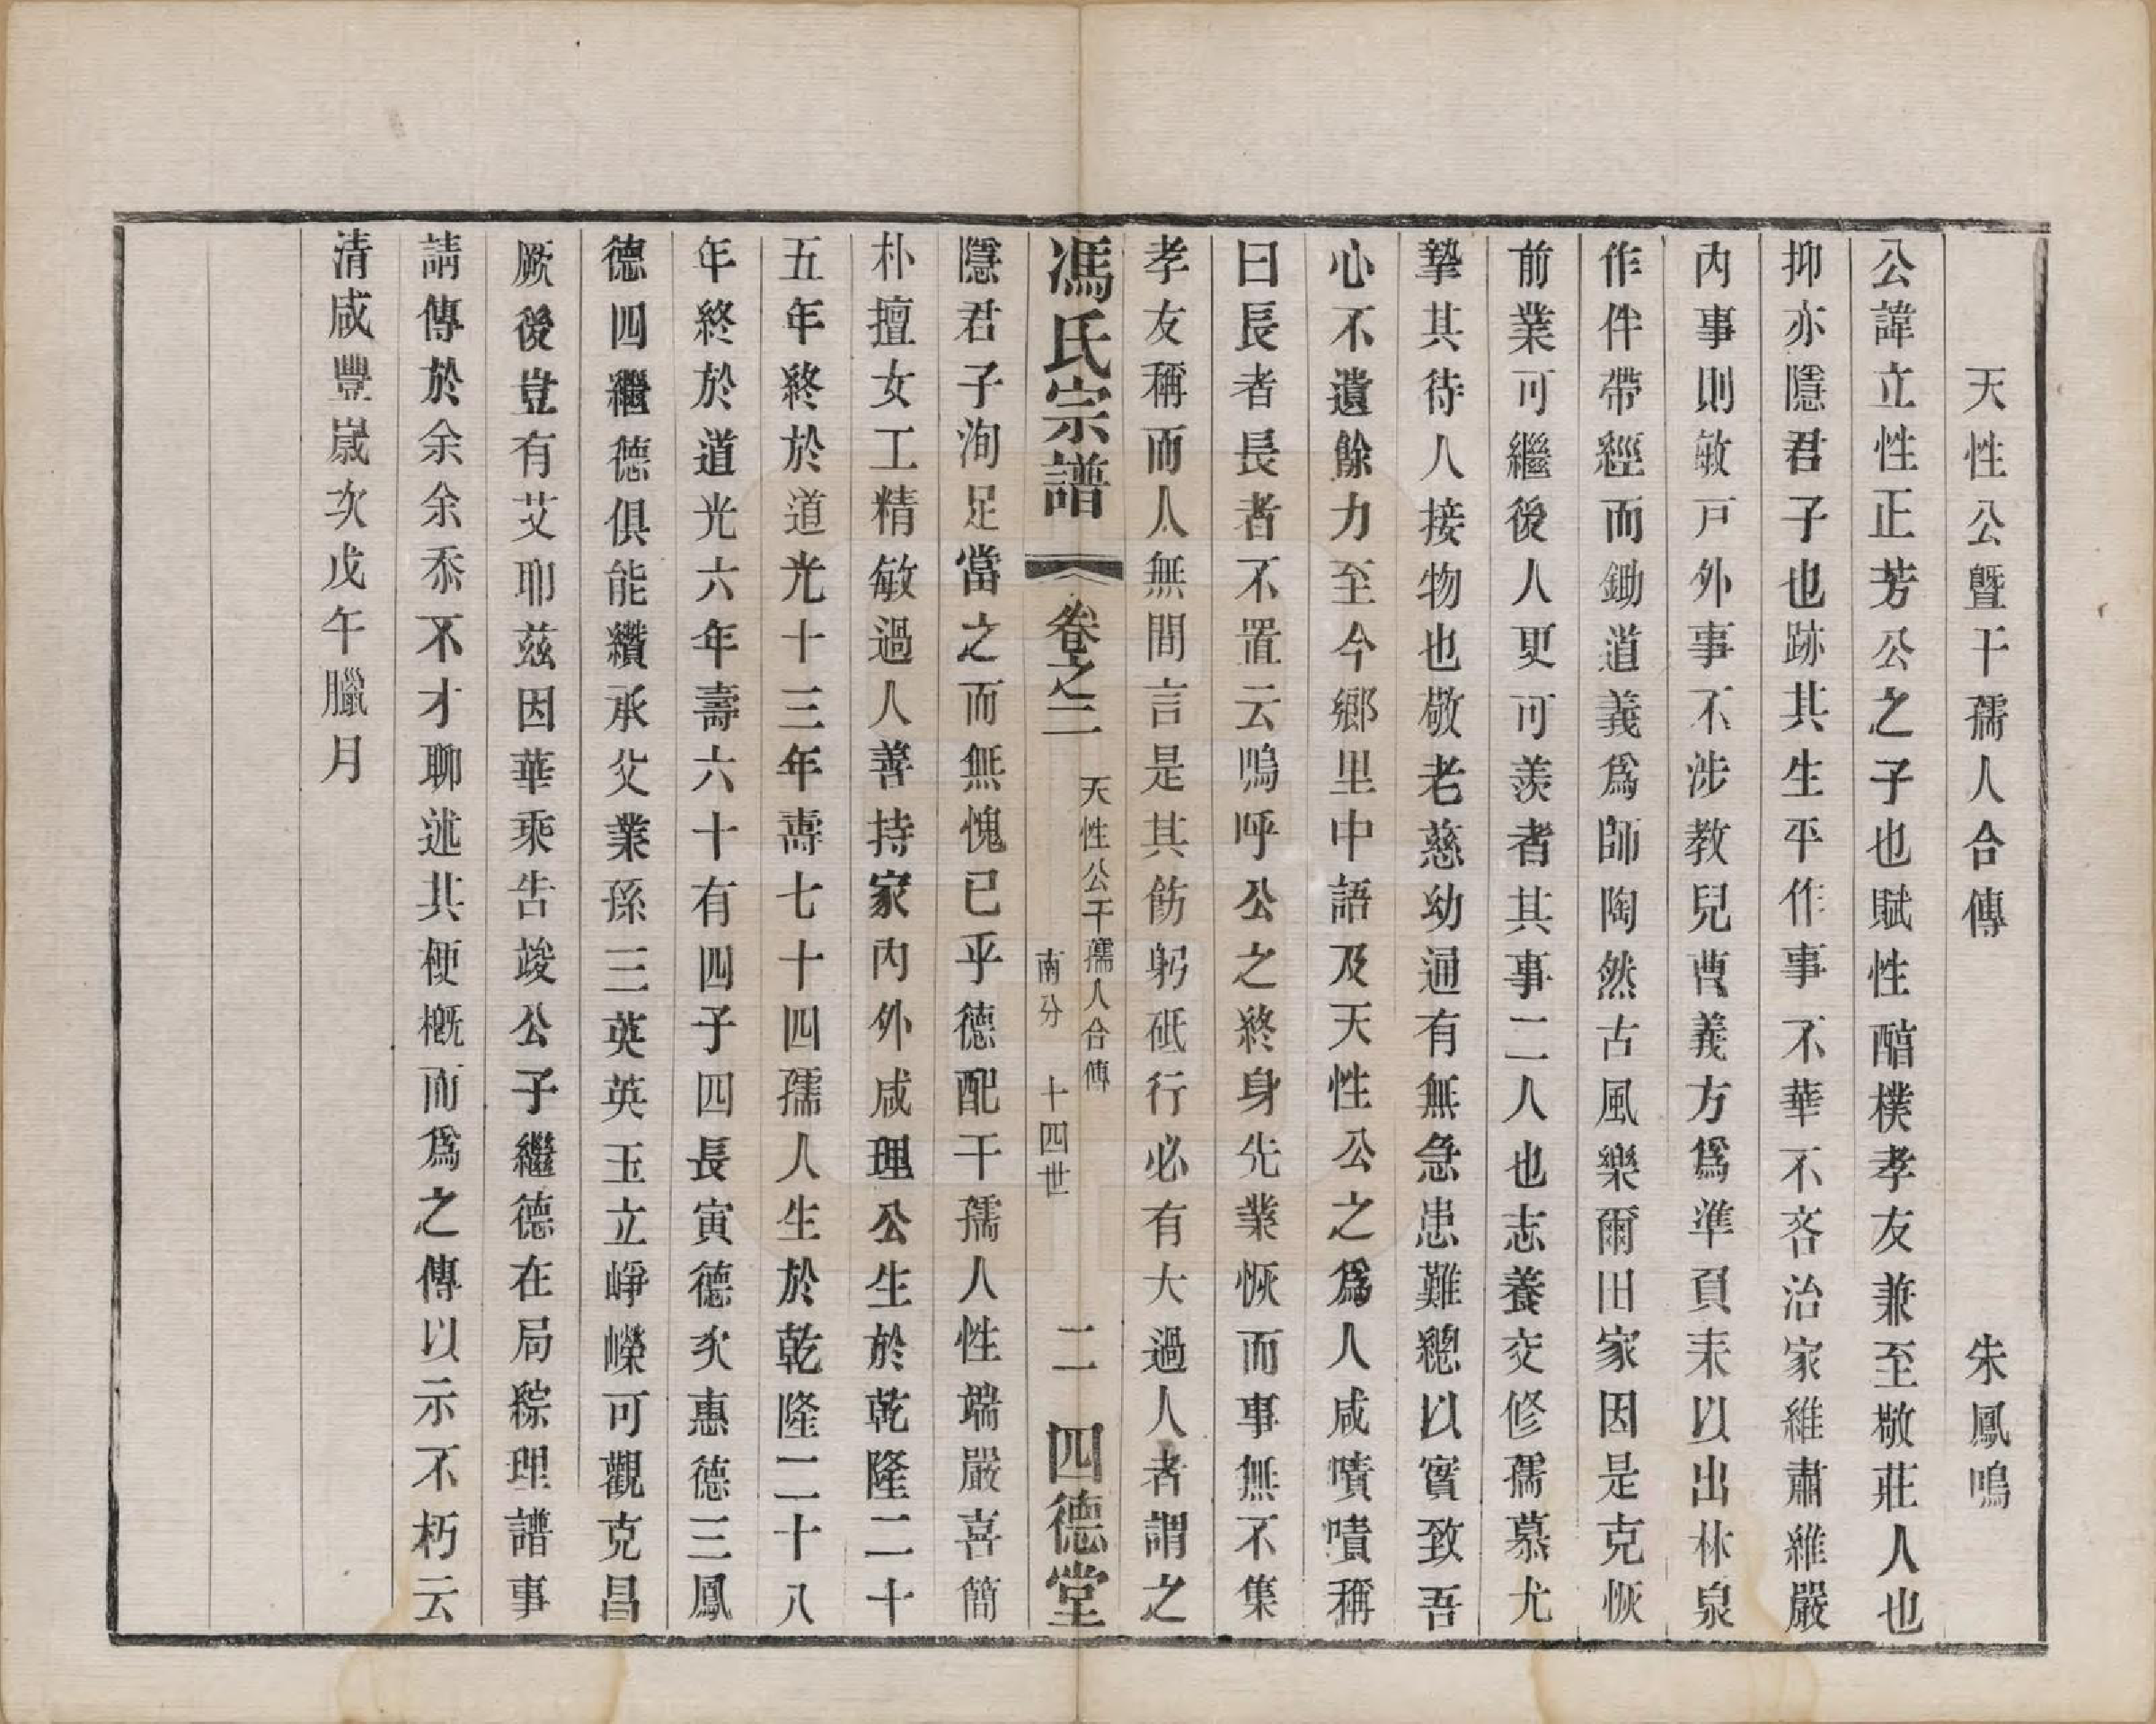 天性公暨干孺人合傳 朱鳳鳴
公諱立性正芳公之子也賦性醕樸孝友兼至敬莊人也
抑亦隱君子也跡其生平作事不華不吝治家維肅維嚴
內事則敏戸外事不涉教兒曹義方爲準頁耒以出林泉
作伴帶經而鋤道義爲師陶然古風樂爾旧家因是克恢
前業可繼後人更可羨者其事二人也志養交修孺慕尤
摯其待人接物也敬老慈幼通有無急患難總以實致吾
心不遺餘力至今鄉里中語及天性公之爲人咸嘖嘖稱
曰長者長者不置云嗚呼公之終身先業恢而事無不集
孝友稱而人無間言是其飭躬砥行必有大過人者謂之
馮氏宗譜 卷之二 天性公干孺人合傳 南分 十四世 二 四德堂
隱君子洵足當之而無愧已乎德配干孺人性端嚴喜簡
朴擅女工精敏過人善持家內外咸理公生於乾隆二十
五年終於道光十三年壽七十四孺人生於乾隆二十八
年終於道光六年壽六十有四子四長寅德次惠德三鳳
德四繼德俱能纘承父業孫三英英玉立崢嶸可觀克昌
厥後豈有艾耶茲因華乘告竣公子繼德在局綜理譜事
請傳於余余忝不才聊述其梗概而爲之傳以示不朽云
清咸豐嵗次戊午臘月